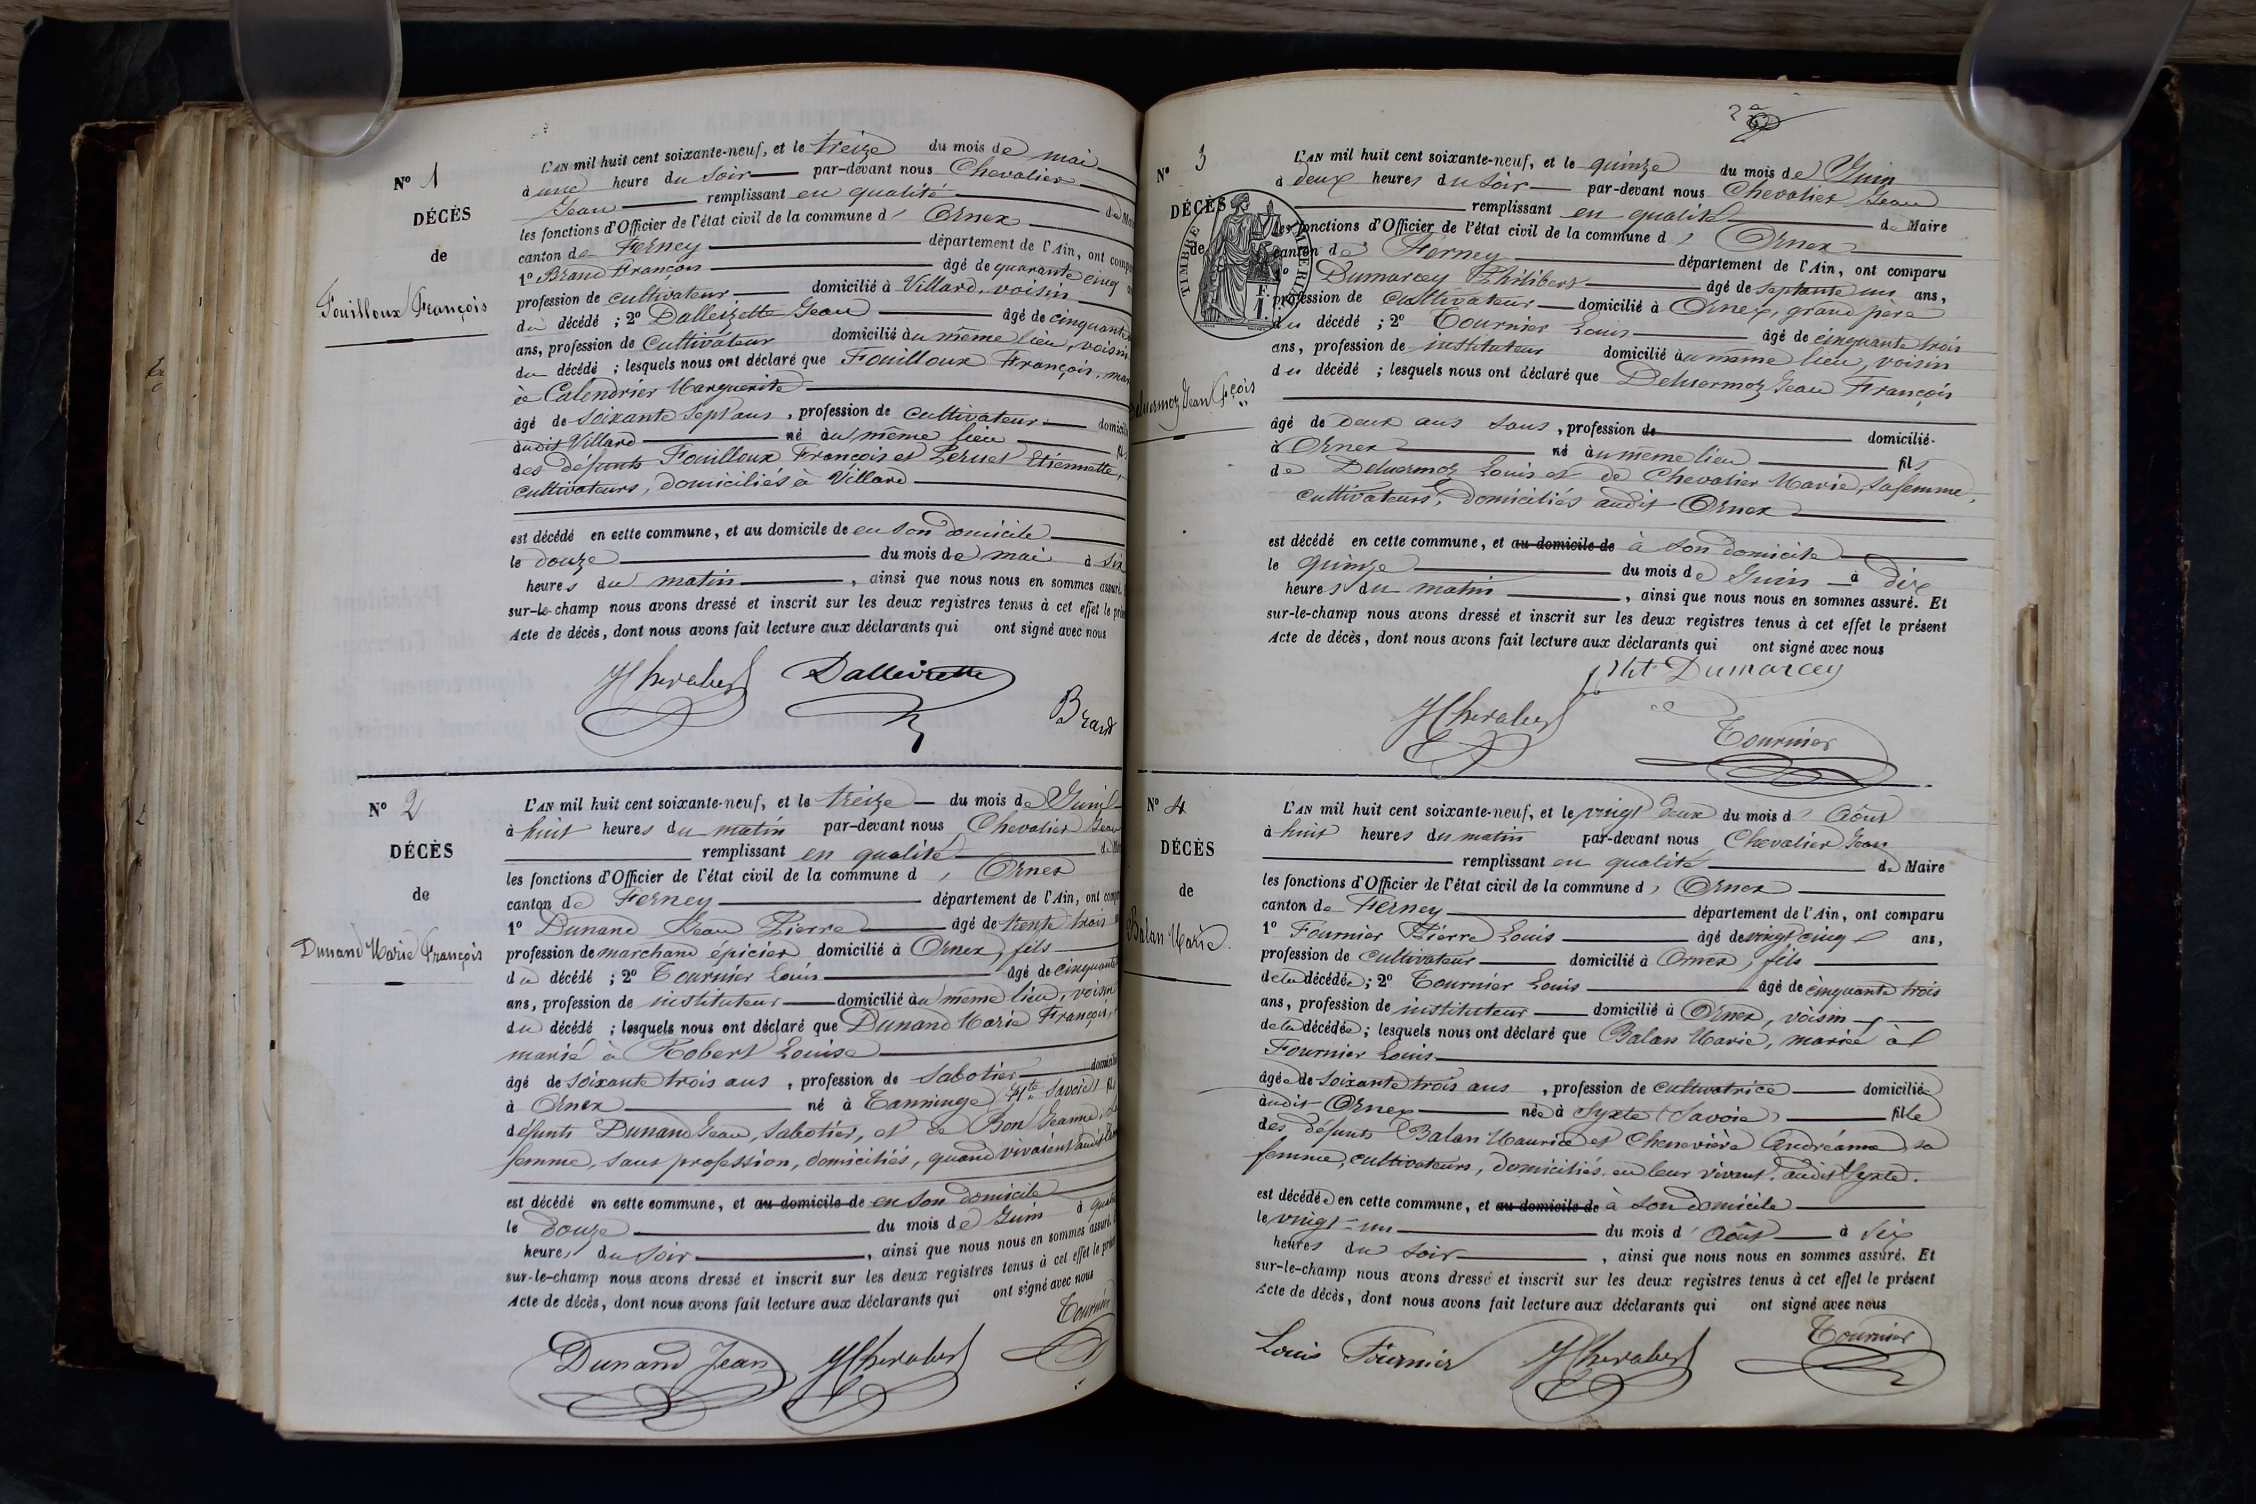 N° 1
DÉCÈS
de
Fouilloux François
L'AN mil huit cent soixante-neuf, et le treize du mois de mai
à une heure du soir par-devant nous Chevalier
Jean remplissant en qualité de
les fonctions d'Officier de l'état civil de la commune d' Ornex
canton de Ferney département de l'Ain, ont
1° Brand François âgé de quarante cinq
profession de cultivateur domicilié à Villard, voisin
du décédé ; 2° Dalleizette Jean âgé de cinquante
ans, profession de cultivateur domicilié au même lieu, voisin
du décédé ; lesquels nous ont déclaré que Fouilloux François,
à Calendrier Marguerite
âgé de soixante sept ans, profession de cultivateur
audit Villard né au même lieu
des défunts Fouilloux François et Etiennette,
cultivateurs, domiciliés à Villard
est décédé en cette commune, et au domicile de en son domicile
le douze du mois de mai à six
heures du matin, ainsi que nous nous en sommes assuré.
sur-le-champ nous avons dressé et inscrit sur les deux registres tenus à cet effet le
Acte de décès, dont nous avons fait lecture aux déclarants qui ont signé avec nous
JChevalier Dalleizette
Brand
N° 2
DÉCÈS
de
Dunand Marie François
L'AN mil huit cent soixante-neuf, et le treize du mois de Juin
à huit heures du matin par-devant nous Chevalier Jean
remplissant en qualité de
les fonctions d'Officier de l'état civil de la commune d' Ornex
canton de Ferney département de l'Ain, ont
1° Dunand Jean Pierre âgé de trente trois
profession de marchand épicier domicilié à Ornex, fils
du décédé ; 2° Tournier Louis âgé de cinquante
ans, profession de instituteur domicilié au même lieu, voisin
du décédé ; lesquels nous ont déclaré que Dunand Marie François,
marié à Robert Louise
âgé de soixante trois ans, profession de sabotier
à Ornex né à Tanninge (Hte Savoie)
défunts Dunand Jean, sabotier, et de Bon Jeanne,
femme, sans profession, domiciliés, quand vivaient audit
est décédé en cette commune, et au domicile de en son domicile
le douze du mois de Juin à
heures du soir, ainsi que nous nous en sommes assuré.
sur-le-champ nous avons dressé et inscrit sur les deux registres tenus à cet effet le
Acte de décès, dont nous avons fait lecture aux déclarants qui ont signé avec nous
Tournier
Dunand Jean JChevalier
N° 3
DÉCÈS
de
Jean Fçois
TIMBRE
L'AN mil huit cent soixante-neuf, et le quinze du mois de Juin
à deux heures du soir par-devant nous Chevalier Jean
remplissant en qualité de Maire
les fonctions d'Officier de l'état civil de la commune d' Ornex
canton de Ferney département de l'Ain, ont comparu
1° Dumarcey Philibert âgé de septante un ans,
profession de cultivateur domicilié à Ornex, grand père
du décédé ; 2° Tournier Louis âgé de cinquante trois
ans, profession de instituteur domicilié au même lieu, voisin
du décédé ; lesquels nous ont déclaré que Deluermoz Jean François
âgé de deux ans sans, profession de domicilié
à Ornex né au même lieu fils
de Deluermoz Louis et de Chevalier Marie, sa femme,
cultivateurs, domiciliés audit Ornex
est décédé en cette commune, et au domicile de à son domicile
le quinze du mois de Juin à dix
heures du matin, ainsi que nous nous en sommes assuré. Et
sur-le-champ nous avons dressé et inscrit sur les deux registres tenus à cet effet le présent
Acte de décès, dont nous avons fait lecture aux déclarants qui ont signé avec nous
Dumarcey
JChevalier
Tournier
N° 4
DÉCÈS
de
Balan Marie
L'AN mil huit cent soixante-neuf, et le vingt deux du mois d' Août
à huit heures du matin par-devant nous Chevalier Jean
remplissant en qualité de Maire
les fonctions d'Officier de l'état civil de la commune d' Ornex
canton de Ferney département de l'Ain, ont comparu
1° Fournier Pierre Louis âgé de vingt cinq ans,
profession de cultivateur domicilié à Ornex, fils
de la décédée ; 2° Tournier Louis âgé de cinquante trois
ans, profession de instituteur domicilié à Ornex, voisin
de la décédée ; lesquels nous ont déclaré que Balan Marie, mariée à
Fournier Louis
âgée de soixante trois ans, profession de cultivatrice domiciliée
audit Ornex née à Syxte (Savoie) fille
des défunts Balan Maurice et Chenevière Andréanne, sa
femme, cultivateurs, domiciliés en leur vivant audit Syxte.
est décédée en cette commune, et au domicile de à son domicile
le vingt-un du mois d' Août à six
heures du soir, ainsi que nous nous en sommes assuré. Et
sur-le-champ nous avons dressé et inscrit sur les deux registres tenus à cet effet le présent
Acte de décès, dont nous avons fait lecture aux déclarants qui ont signé avec nous
Louis Fournier JChevalier Tournier